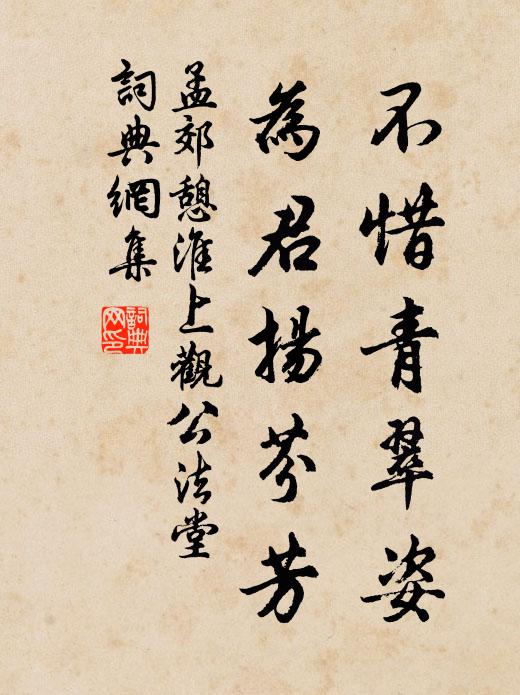 不惜青翠姿
為君揚芬芳
孟郊憩淮上觀公法堂
詞典網集
詞典网印